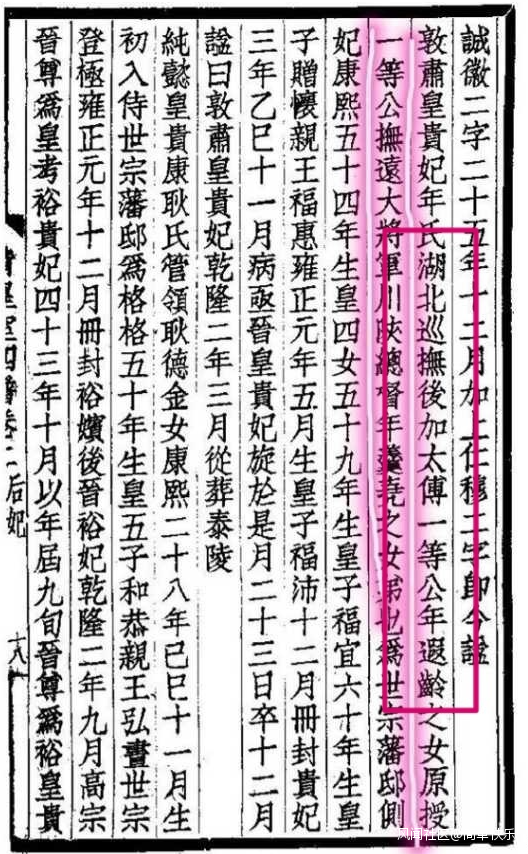 誠徽二字二十五年十二月加上仁穆二字即今諡
敦肅皇貴妃年氏湖北巡撫後加太傅一等公年遐齡之女原授
一等公撫遠大將軍川陝總督年羹堯之女弟也爲世宗藩邸側
妃康熙五十四年生皇四女五十九年生皇子福宜六十年生皇
子贈懷親王福惠雍正元年五月生皇子福沛十二月冊封貴妃
三年乙巳十一月病亟晉皇貴妃旋於是月二十三日卒十二月
諡曰敦肅皇貴妃乾隆二年三月從葬泰陵
純懿皇貴康耿氏管領耿德金女康熙二十八年己巳十一月生
初入侍世宗藩邸爲格格五十年生皇五子和恭親王弘晝世宗
登極雍正元年十二月冊封裕嬪後晉裕妃乾隆二年九月高宗
晉尊爲皇考裕貴妃四十三年十月以年屆九旬晉尊爲裕皇貴
皇室四譜卷二 后妃 十八
风闻社区@简单快乐